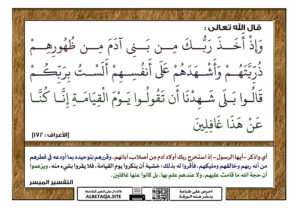 قال الله تعالى :
وَإِذْ أَخَذَ رَبُّكَ مِن بَنِي آدَمَ مِن ظُهُورِهِمْ
ذُرِّيَّتَهُمْ وَأَشْهَدَهُمْ عَلَى أَنفُسِهِمْ أَلَسْتُ بِرَبِّكُمْ
قَالُوا بَلَى شَهِدْنَا أَن تَقُولُوا يَوْمَ الْقِيَامَةِ إِنَّا كُنَّا
عَنْ هَذَا غَافِلِينَ
[الأعراف : ١٧٢]
أي واذكر - أيها الرسول - إذ استخرج ربك أولاد آدم من أصلاب آبائهم، وقررهم بتوحيده بما أودعه في فطرهم
من أنه ربهم وخالقهم ومليكهم، فأقروا له بذلك؛ خشية أن ينكروا يوم القيامة، فلا يقروا بشيء منه، ويزعموا
أن حجة الله ما قامت عليهم، ولا عندهم علم بها، بل كانوا عنها غافلين.
التفسير الميسر
احرص على طباعة
ونشر هذه الورقة
ALBETAQA.SITE